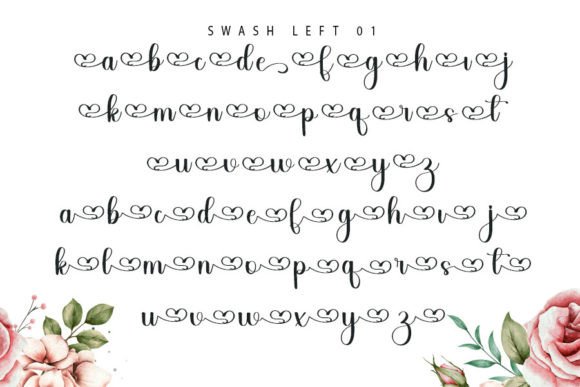 SWASH LEFT 01
a b c d e f g h ı j
k m n o p q r s t
u v w x y z
a b c d e f g h ı j
k l m n o p q r s t
u v w x y z